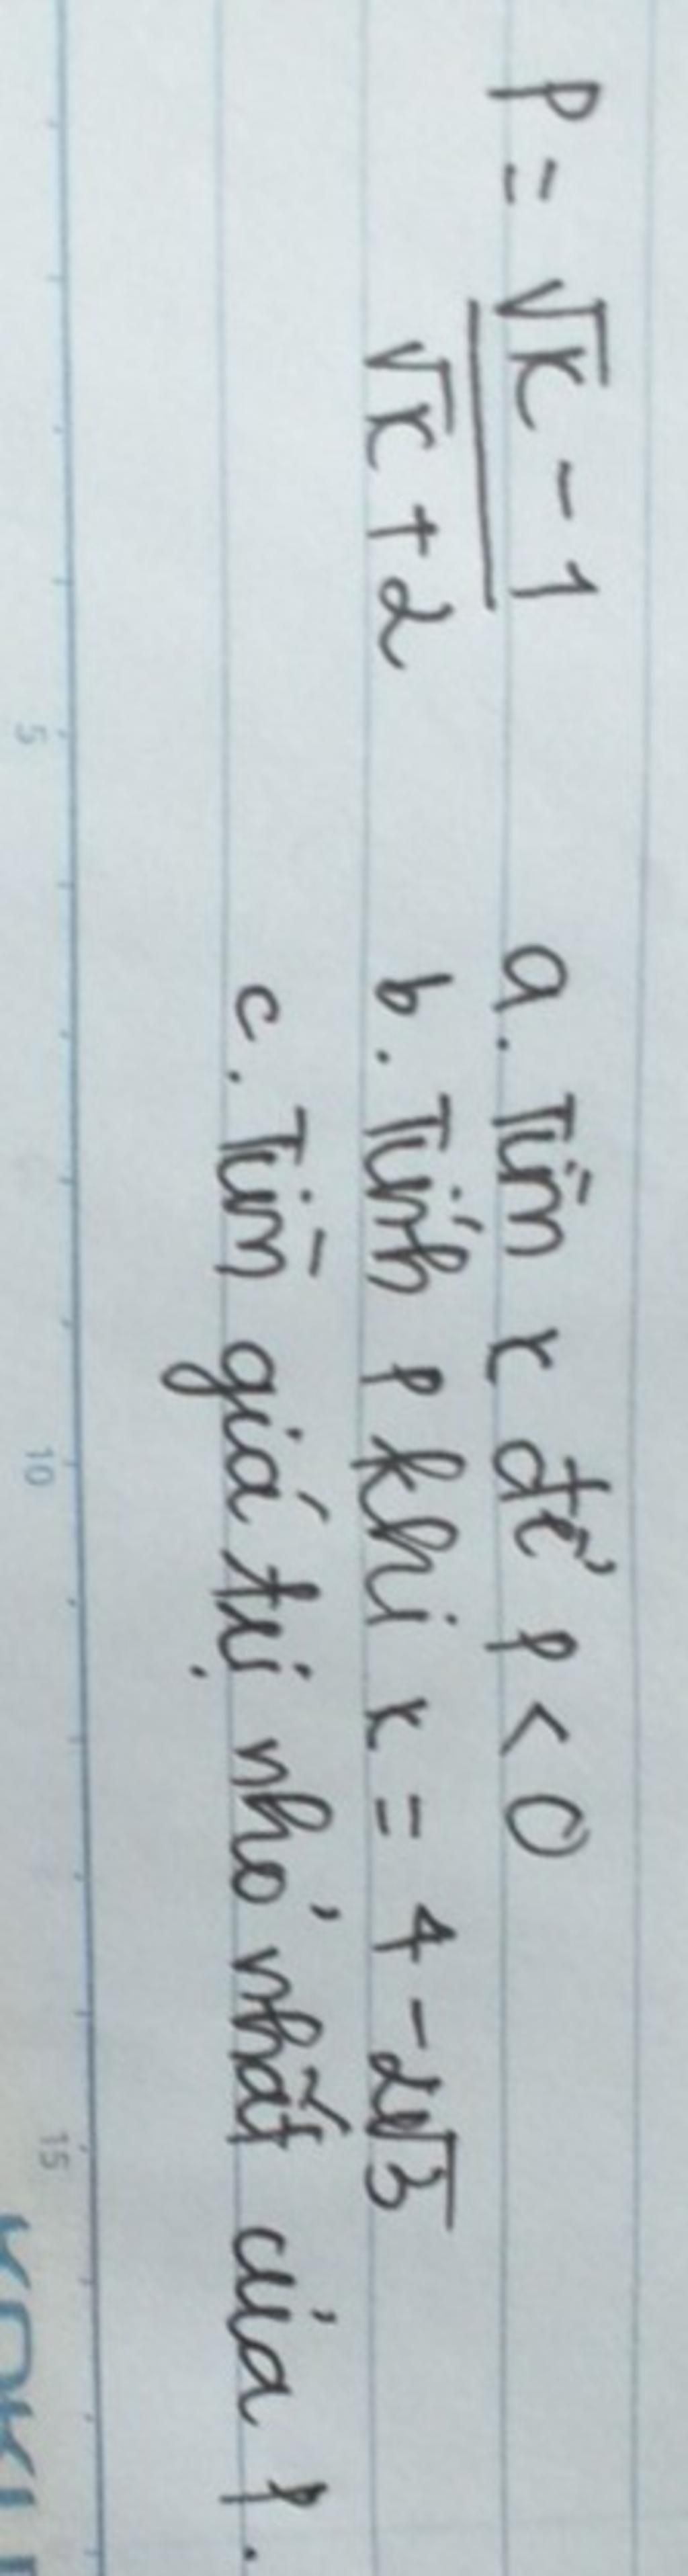 P = √x - 1 / √x + 2
a. Tìm x để P < 0
b. Tính P khi x = 4 - 2√3
c. Tìm giá trị nhỏ nhất của P.
5
10
15